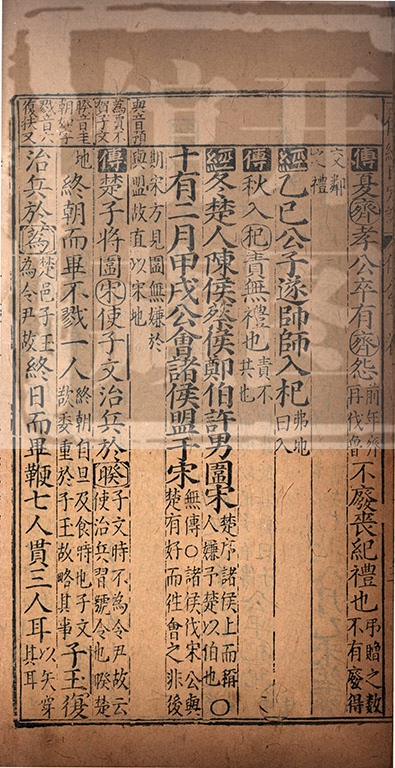 傳夏齊孝公卒有齊怨前年齊再伐魯不廢喪紀禮也弔贈之數不有廢得
交鄰之禮
經乙巳公子遂帥師入杞弗地曰入
傳秋入杞責無禮也責不共也
經冬楚人陳侯蔡侯鄭伯許男圍宋楚序諸侯上而稱人嫌予楚以伯也〇
十有二月甲戌公會諸侯盟于宋無傳〇諸侯伐宋公與楚有好而往會之非後
期宋方見圍無嫌於與盟故直以宋地
與音預
蒍賈不
賀子文
傳楚子將圍宋使子文治兵於睽子文時不為令尹故云使治兵習號令也睽楚
睽音圭
朝如字
地終朝而畢不戮一人終朝自旦及食時也子文欲委重於子玉故略其事子玉復
復扶又
治兵於蒍楚邑子玉為令尹故終日而畢鞭七人貫三人耳以矢穿其耳